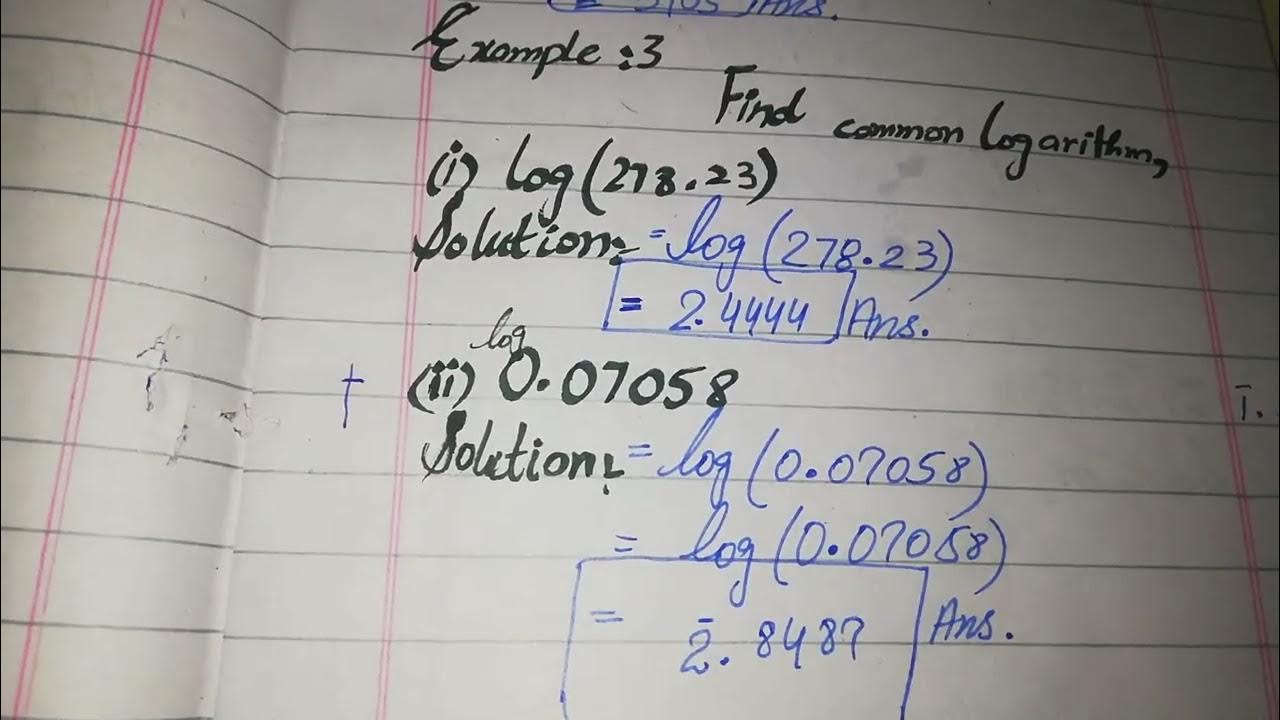 Ans.
Example :3
Find common logarithm,
(i) log(278.23)
Solution:- = log(278.23)
= 2.4444 Ans.
log
(ii) 0.07058
ī.
Solution:- = log(0.07058)
= log(0.07058)
= 2̄.8487 Ans.